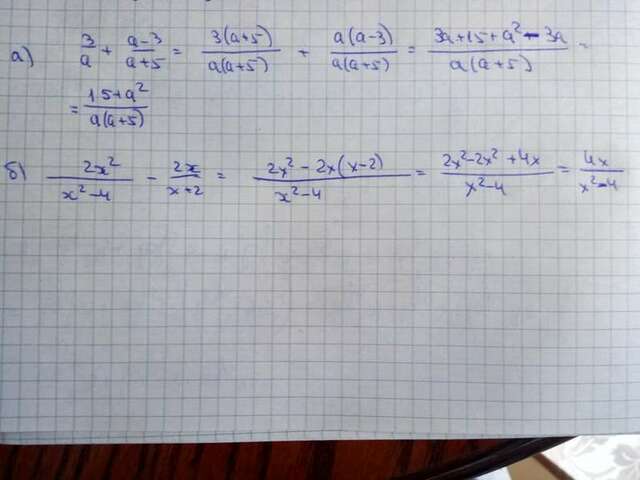 а) 3/a + a-3/a+5 = 3(a+5)/a(a+5) + a(a-3)/a(a+5) = 3a+15+a²-3a/a(a+5) =
= 15+a²/a(a+5)
б) 2x²/x²-4 - 2x/x+2 = 2x²-2x(x-2)/x²-4 = 2x²-2x²+4x/x²-4 = 4x/x²-4